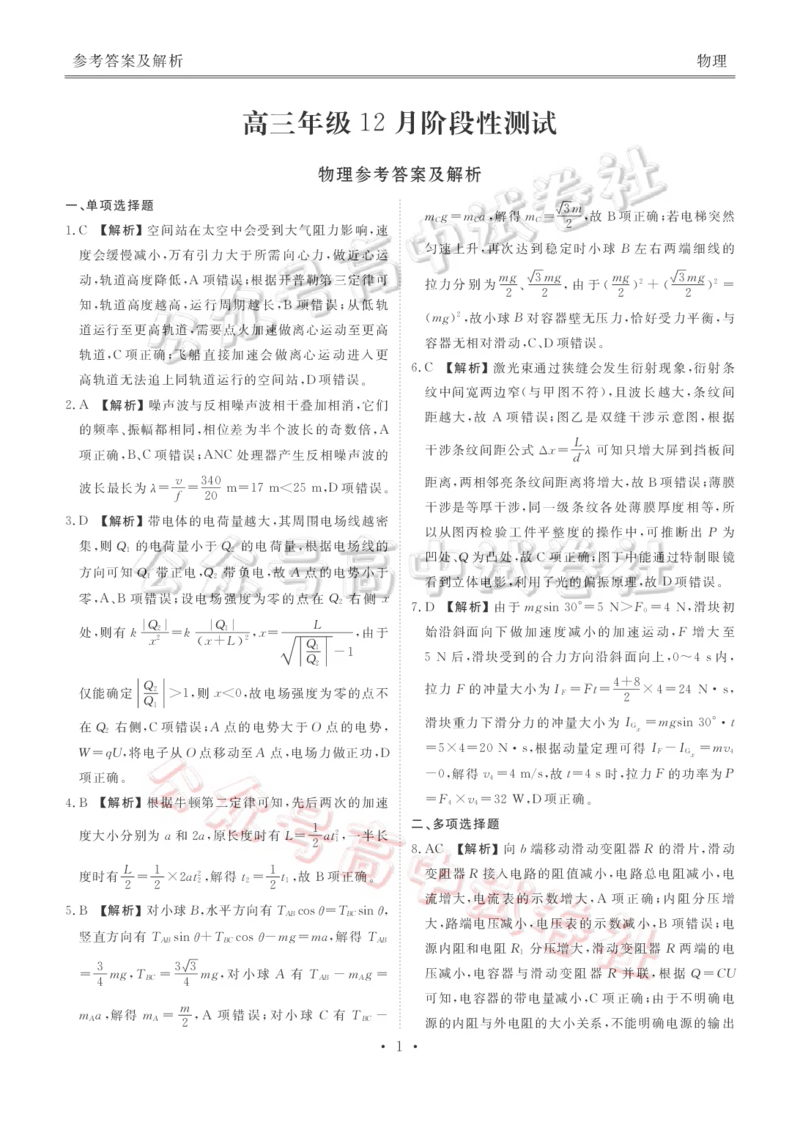 参考答案及解析
物理
高三年级 12 月阶段性测试
物理参考答案及解析
一、单项选择题
1.C 【解析】空间站在太空中会受到大气阻力影响,速
度会缓慢减小,万有引力大于所需向心力,做近心运
动,轨道高度降低,A项错误;根据开普勒第三定律可
知,轨道高度越高,运行周期越长,B项错误;从低轨
道运行至更高轨道,需要点火加速做离心运动至更高
轨道,C项正确;飞船直接加速会做离心运动进入更
高轨道无法追上同轨道运行的空间站,D项错误。
2.A 【解析】噪声波与反相噪声波相干叠加相消,它们
的频率、振幅都相同,相位差为半个波长的奇数倍,A
项正确,B、C项错误;ANC处理器产生反相噪声波的
波长最长为 λ=v/f=340/20 m=17 m<25 m,D项错误。
3.D 【解析】带电体的电荷量越大,其周围电场线越密
集,则 Q₁ 的电荷量小于 Q₂ 的电荷量,根据电场线的
方向可知 Q₁ 带正电,Q₂ 带负电,故 A 点的电势小于
零,A、B项错误;设电场强度为零的点在 Q₂ 右侧 x
处,则有 k|Q₂|/x²=k|Q₁|/(x+L)²,x=L/(√|Q₁/Q₂|-1),由于
仅能确定 |Q₂/Q₁|>1,则 x<0,故电场强度为零的点不
在 Q₂ 右侧,C项错误;A点的电势大于O点的电势,
W=qU,将电子从O点移动至A点,电场力做正功,D
项正确。
4.B 【解析】根据牛顿第二定律可知,先后两次的加速
度大小分别为 a 和 2a,原长度时有 L=1/2 at₁²,一半长
度时有 L/2=1/2×2at₂²,解得 t₂=1/2 t₁,故 B项正确。
5.B 【解析】对小球 B,水平方向有 T_AB cos θ=T_BC sin θ,
竖直方向有 T_AB sin θ+T_BC cos θ-mg=ma,解得 T_AB
=3/4 mg,T_BC=3√3/4 mg,对小球 A 有 T_AB-m_A g=
m_A a,解得 m_A=m/2,A 项错误;对小球 C 有 T_BC-
m_C g=m_C a,解得 m_C=√3m/2,故 B项正确;若电梯突然
匀速上升,再次达到稳定时小球 B 左右两端细线的
拉力分别为 mg/2、√3mg/2,由于(mg/2)²+(√3mg/2)²=
(mg)²,故小球B对容器壁无压力,恰好受力平衡,与
容器无相对滑动,C、D项错误。
6.C 【解析】激光束通过狭缝会发生衍射现象,衍射条
纹中间宽两边窄(与甲图不符),且波长越大,条纹间
距越大,故 A项错误;图乙是双缝干涉示意图,根据
干涉条纹间距公式 Δx=L/d λ 可知只增大屏到挡板间
距离,两相邻亮条纹间距离将增大,故B项错误;薄膜
干涉是等厚干涉,同一级条纹各处薄膜厚度相等,所
以从图丙检验工件平整度的操作中,可推断出 P 为
凹处、Q为凸处,故C项正确;图丁中能通过特制眼镜
看到立体电影,利用了光的偏振原理,故 D项错误。
7.D 【解析】由于 mgsin 30°=5 N>F₀=4 N,滑块初
始沿斜面向下做加速度减小的加速运动,F 增大至
5 N后,滑块受到的合力方向沿斜面向上,0~4 s内,
拉力 F 的冲量大小为 I_F=Ft=(4+8)/2×4=24 N·s,
滑块重力下滑分力的冲量大小为 I_Gx=mgsin 30°·t
=5×4=20 N·s,根据动量定理可得 I_F-I_Gx=mv₄
-0,解得 v₄=4 m/s,故 t=4 s时,拉力F的功率为P
=F₄×v₄=32 W,D项正确。
二、多项选择题
8.AC 【解析】向 b 端移动滑动变阻器 R 的滑片,滑动
变阻器 R 接入电路的阻值减小,电路总电阻减小,电
流增大,电流表的示数增大,A 项正确;内阻分压增
大,路端电压减小,电压表的示数减小,B项错误;电
源内阻和电阻 R₁ 分压增大,滑动变阻器 R 两端的电
压减小,电容器与滑动变阻器 R 并联,根据 Q=CU
可知,电容器的带电量减小,C 项正确;由于不明确电
源的内阻与外电阻的大小关系,不能明确电源的输出
· 1 ·
公众号高中试卷社
公众号高中试卷社
公众号高中试卷社